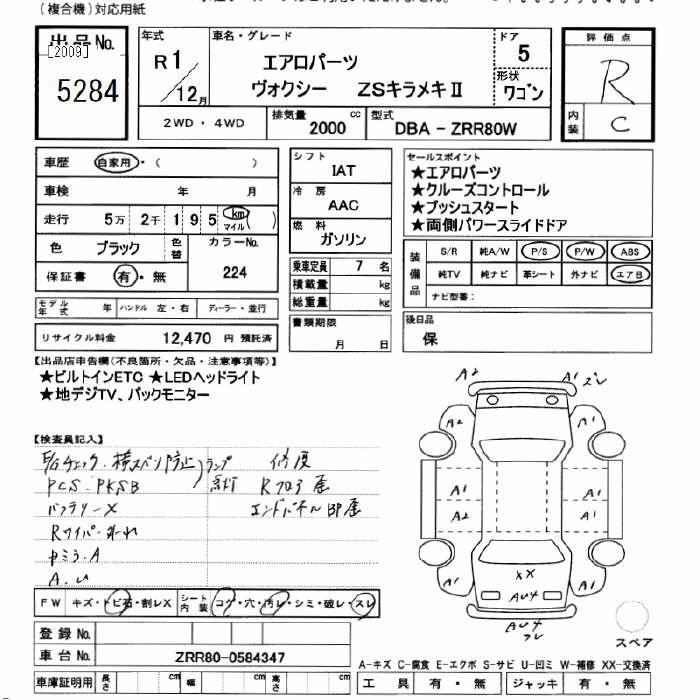 (複合機)対応用紙
出品No.
[2009]
5284
年式
R1/12月
車名・グレード
エアロパーツ
ヴォクシー ZSキラメキⅡ
ドア
5
形状
ワゴン
評価点
R
内装
C
2WD・4WD
排気量 2000 cc
型式 DBA-ZRR80W
車歴 自家用・( )
車検 年 月
走行 5万 2千 1 9 5 km マイル ( )
色 ブラック 色替
カラーNo.
224
保証書 有・無
モデル年式 年 ハンドル 左・右 ディーラー・並行
リサイクル料金 12,470 円 預託済
シフト
IAT
冷房
AAC
燃料
ガソリン
乗車定員 7 名
積載量 kg
総重量 kg
書類期限
月 日
セールスポイント
★エアロパーツ
★クルーズコントロール
★プッシュスタート
★両側パワースライドドア
装備品
S/R 純A/W P/S P/W ABS
純TV 純ナビ 革シート 外ナビ エアB
ナビ型番:
後日品
保
【出品店申告欄(不良箇所・欠品・注意事項等)】
★ビルトインETC ★LEDヘッドライト
★地デジTV、バックモニター
【検査員記入】
E/Gチェック・横スベリ防止 ランプ
PCS・PKSB 点灯
バッテリーX
Rワイパー外れ
中ミラ・A
修復
Rフロア歪
エンドパネルBP歪
FW キズ・トビ石・割レX
シート内装 コゲ・穴・汚レ・シミ・破レ・スレ
登録No.
車台No. ZRR80-0584347
車庫証明用 長さ cm 幅 cm 高さ cm
A2
A1
ズレ
A1
A1
A1
A1
A2
A2
XX
AU4
A1
A1
AU4
ズレ
スペア
A-キズ C-腐食 E-エクボ S-サビ U-凹ミ W-補修 XX-交換済
工具 有・無 ジャッキ 有・無